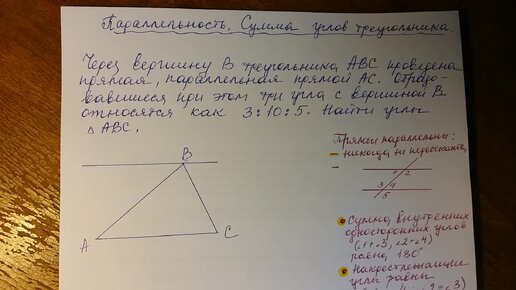 Параллельность. Сумма углов треугольника.
Через вершину В треугольника АВС проведена
прямая, параллельная прямой АС. Образо-
вавшиеся при этом три угла с вершиной В
относятся как 3:10:5. Найти углы
△ АВС.
Прямые параллельны:
– никогда не пересекаются
–
1 2
3 4
5
В
А
С
Сумма внутренних
односторонних углов
(∠1+∠3, ∠2+∠4)
равна 180°
Накрестлежащие
углы равны
∠2=∠3)